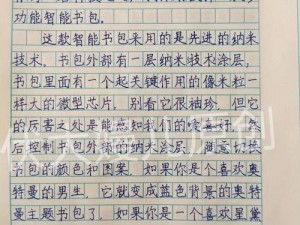 功能智能书包。
这款智能书包采用的是先进的纳米
技术，书包外部有一层纳米技术涂层，
书包里面有一个起关键作用的像米粒一
样大的微型芯片，别看它很袖珍，但它
的厉害之处是能感知我们的爱喜好，然
后控制书包外部的纳米涂层，随意切换
书包的颜色和图案，如果你是个喜欢奥
特曼的男生，它就变成蓝色背景的奥特
曼主题书包了，如果你是一个喜欢星黛